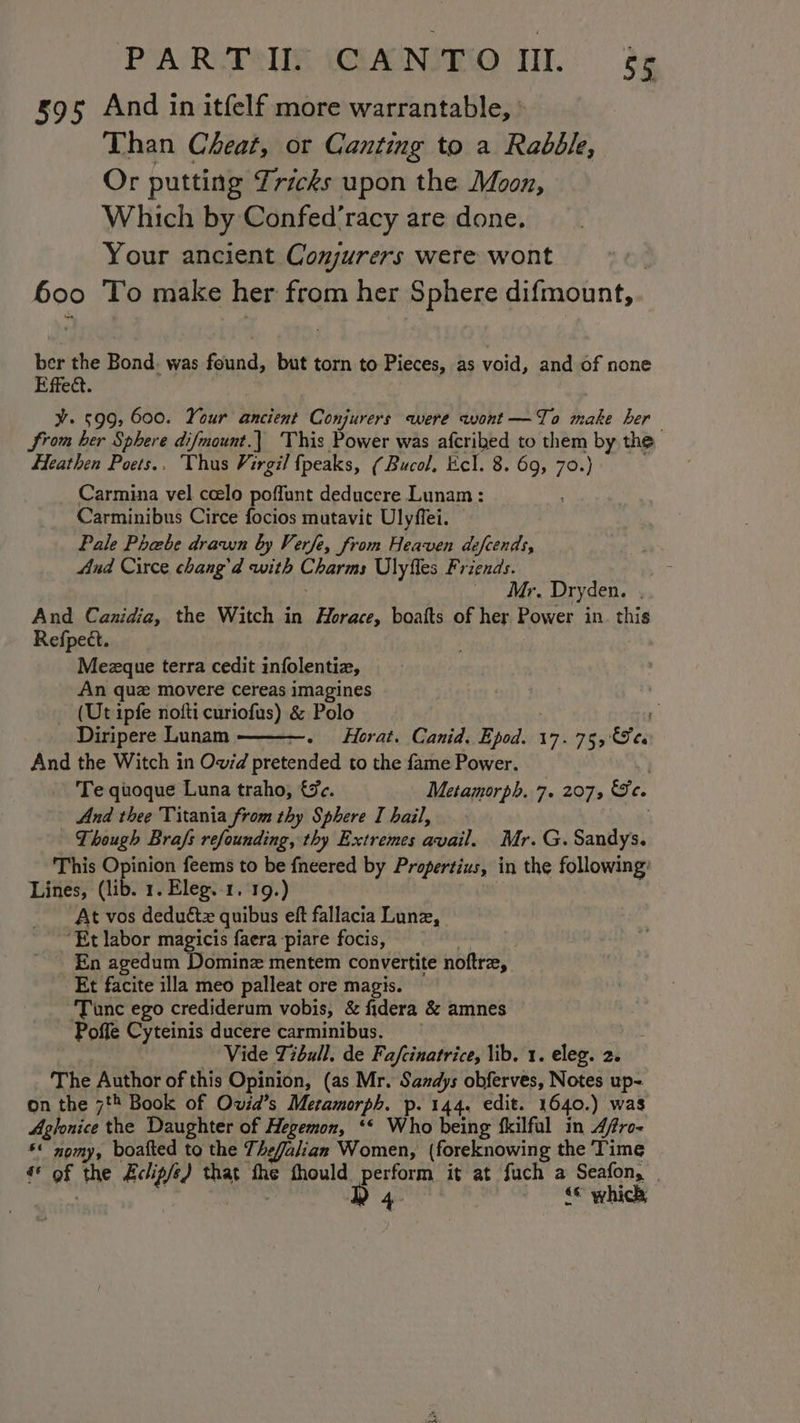 PART II. CANTO III. 55
595 And in itſelf more warrantable,
Than Cheat, or Canting to a Rabble,
Or putting Tricks upon the Moon,
Which by Confed'racy are done.
Your ancient Conjurers were wont
600 To make her from her Sphere diſmount,
ber the Bond. was found, but torn to Pieces, as void, and of none
Effect.
℣. 599, 600. Your ancient Conjurers were wont — To make her
from her Sphere diſmount.] This Power was aſcribed to them by the
Heathen Poets.. Thus Virgil ſpeaks, (Bucol. Ecl. 8. 69, 70.)
Carmina vel cœlo poſſunt deducere Lunam:
Carminibus Circe ſocios mutavit Ulyſſei.
Pale Phœbe drawn by Verſe, from Heaven deſcends,
And Circe chang'd with Charms Ulyſſes Friends.
Mr. Dryden.
And Canidia, the Witch in Horace, boaſts of her Power in this
Reſpect.
Meæque terra cedit inſolentiæ,
An quæ movere cereas imagines
(Ut ipſe noſti curioſus) & Polo
Diripere Lunam ———. Horat. Canid. Epod. 17. 75, &c.
And the Witch in Ovid pretended to the ſame Power.
Te quoque Luna traho, &c. Metamorph. 7. 207, &c.
And thee Titania from thy Sphere I hail,
Though Braſs reſounding, thy Extremes avail. Mr. G. Sandys.
This Opinion ſeems to be ſneered by Propertius, in the following
Lines, (lib. 1. Eleg. 1. 19.)
At vos deductæ quibus eſt fallacia Lunæ,
Et labor magicis ſacra piare focis,
En agedum Dominæ mentem convertite noſtræ,
Et facite illa meo palleat ore magis.
Tunc ego crediderum vobis, & ſidera & amnes
Poſſe Cyteinis ducere carminibus.
Vide Tibull. de Faſcinatrice, lib. 1. eleg. 2.
The Author of this Opinion, (as Mr. Sandys obſerves, Notes up-
on the 7th Book of Ovid's Metamorph. p. 144. edit. 1640.) was
Aglonice the Daughter of Hegemon, “ Who being ſkilful in Aſtro-
“ nomy, boaſted to the Theſſalian Women, (foreknowing the Time
“ of the Eclipſe) that ſhe ſhould perform it at ſuch a Seaſon,
D 4 “ which